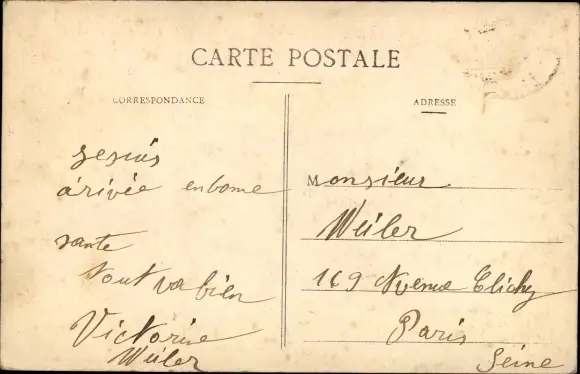 CARTE POSTALE
CORRESPONDANCE
ADRESSE
jesuis
arivée enbone
sante
tout va bien
Victorine
Weiler
Monsieur
Weiler
169 Avenue Clichy
Paris
Seine